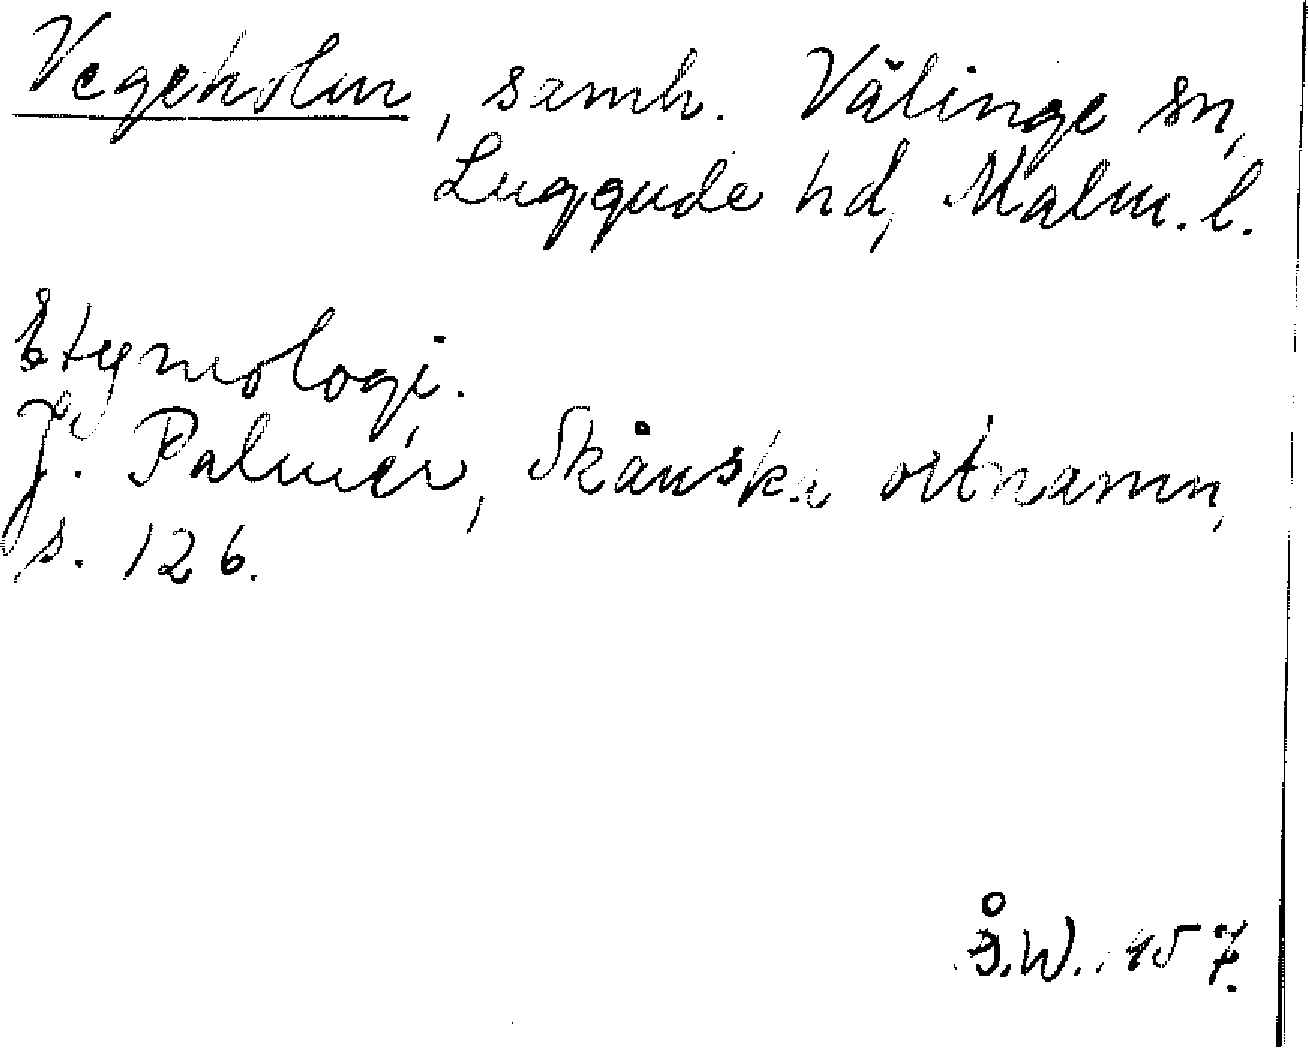 Vegeholm, samh. Välinge sn,
Luggude hd, Malm. l.
Etymologi.
J. Palmér, Skånska ortnamn,
s. 126.
Å.W. 157.